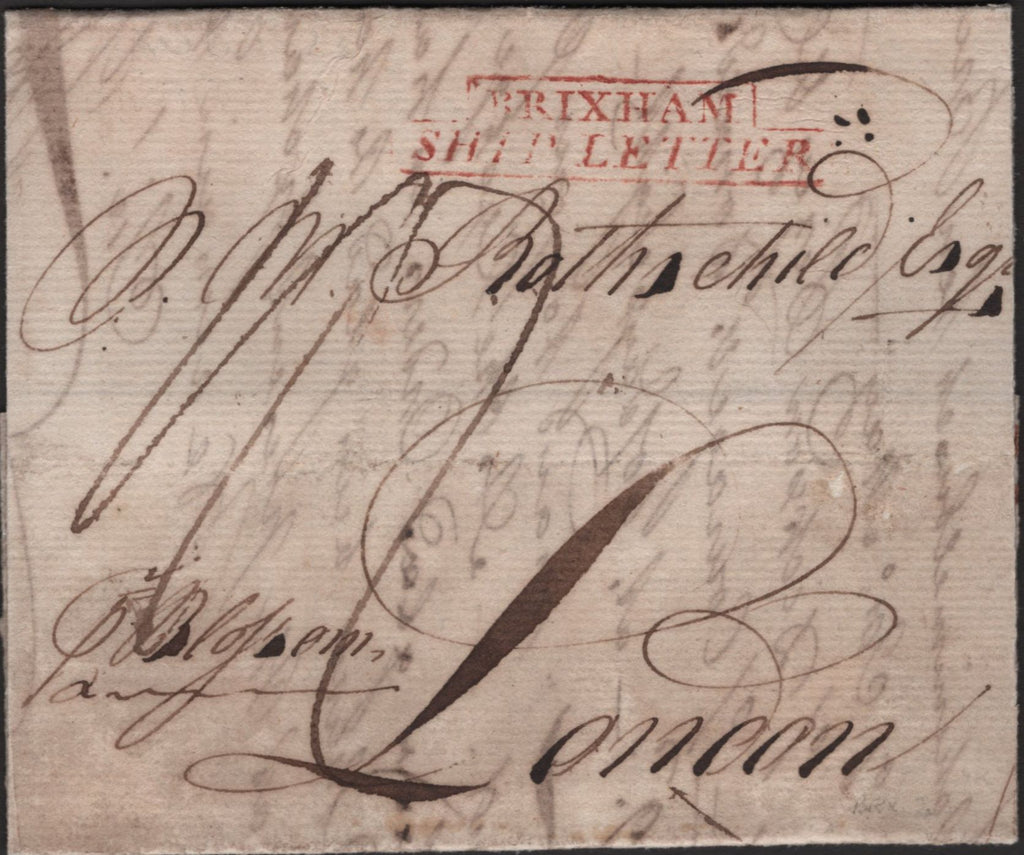 BRIXHAM
SHIP LETTER
N. M. Rothschild Esqr
pr Blossom,
London